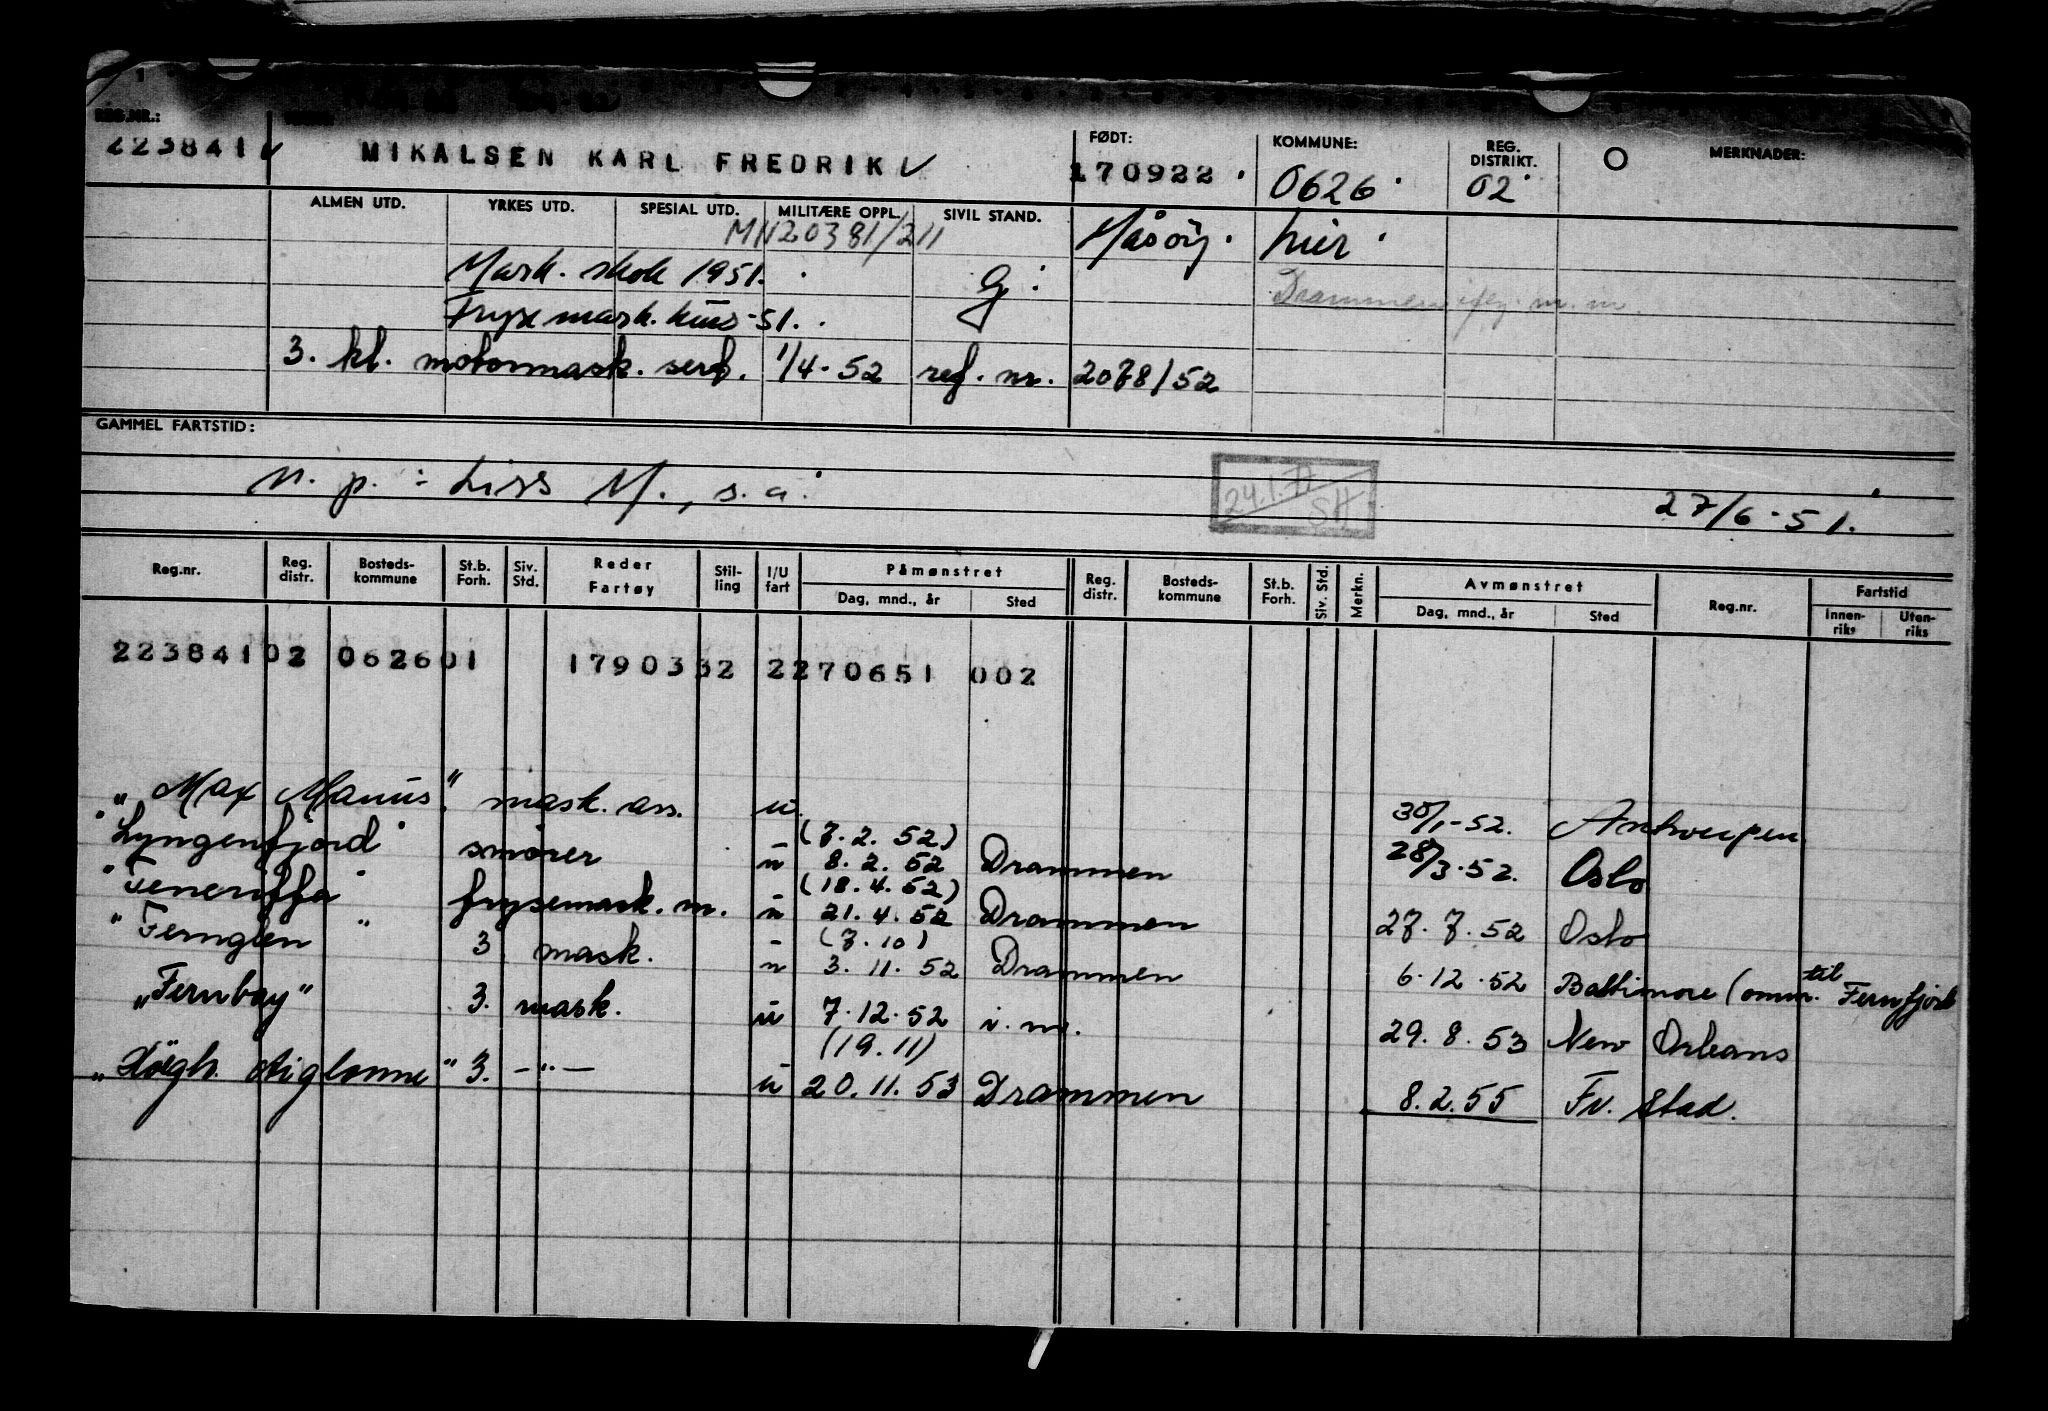 REG.NR.: FØDT: KOMMUNE: REG. DISTRIKT. MERKNADER:
223841 MIKALSEN KARL FREDRIK 170922 0626 02
ALMEN UTD. YRKES UTD. SPESIAL UTD. MILITÆRE OPPL. SIVIL STAND. Måsøy. Lier
MN20381/211
Mask. skole 1951. G
Drammen
Fryse mask. kurs - 51.
3. kl. motormask. sert. 1/4 - 52 ref. nr. 2078/52
GAMMEL FARTSTID:
n. p. : Liss M., s.a. 24.1. SH 27/6 - 51.
Reg.nr. Reg. distr. Bosteds-kommune St.b. Forh. Siv. Std. Reder Fartøy Stil-ling I/U fart Påmønstret Dag, mnd., år Sted Reg. distr. Bosteds-kommune St.b. Forh. Siv. Std. Merkn. Avmønstret Dag, mnd., år Sted Reg.nr. Fartstid Innen-riks Uten-riks
223841 02 0626 01 1790332 2270651 002
"Max Manus" mask. ass. u. 30/1-52. Antwerpen
(7. 2. 52)
"Lyngenfjord" smører u 8. 2. 52 Drammen 28/3. 52. Oslo
(18. 4. 52)
"Teneriffa" frysemask. m. u 21. 4. 52 Drammen 27. 7. 52 Oslo
(7. 10)
"Fernglen" 3 mask. u 3. 11. 52 Drammen 6. 12. 52 Baltimore (omm. til Fernfjord
"Fernbay" 3. mask. u 7. 12. 52 i. m. 29. 8. 53 New Orleans
(19. 11)
"Høegh Aiglonne" 3. -"- u 20. 11. 53 Drammen 8. 2. 55 Fr. stad.